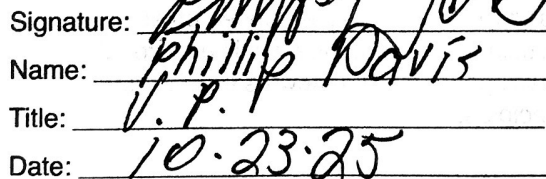 Signature:
Name: Phillip Davis
Title: V. P.
Date: 10.23.25